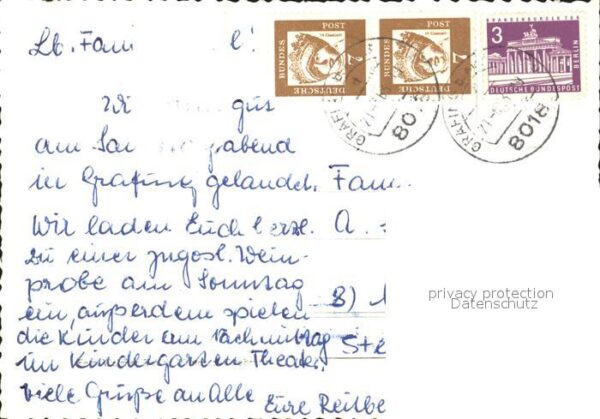 Lb. Fam !
gut
am abend
in Grafing gelandet. Fam
Wir laden Euch herzl. A.
zu einer jugosl. Wein-
probe am Sonntag
ein, außerdem spielen B)
die Kinder am Nachmittag Str
im Kindergarten Theater.
viele Grüße an Alle Eure
DEUTSCHE BUNDESPOST 7
DEUTSCHE BUNDESPOST 7
3 BRANDENBURGER TOR BERLIN DEUTSCHE BUNDESPOST
GRAFING 8018
GRAFING 8018
privacy protection
Datenschutz